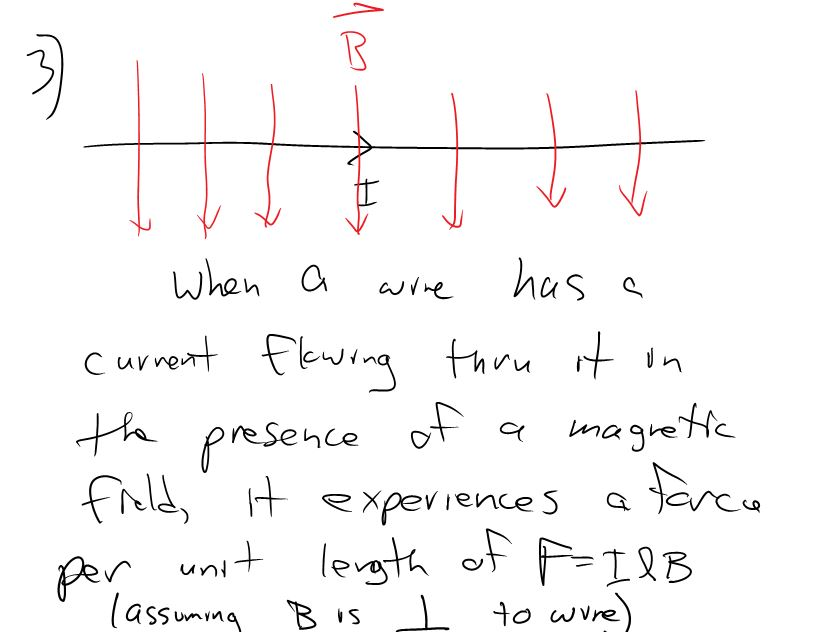 3)
B
I
When a wire has a
current flowing thru it in
the presence of a magnetic
field, it experiences a force
per unit length of F=IlB
(assuming B is ⊥ to wire)